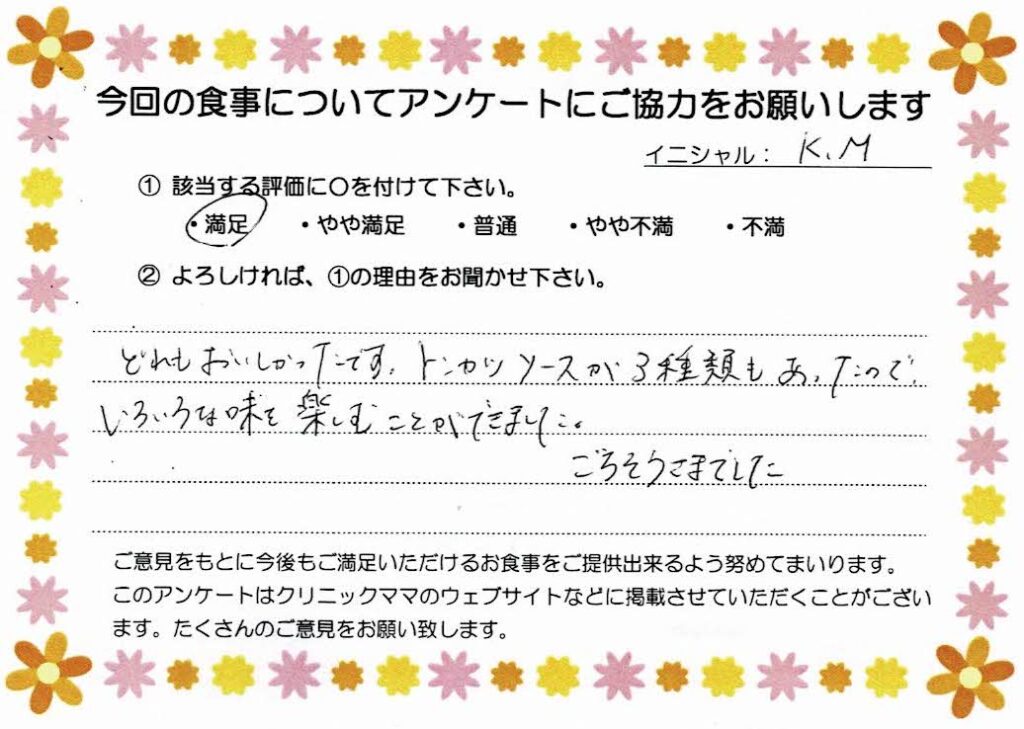 今回の食事についてアンケートにご協力をお願いします
イニシャル： K.M
① 該当する評価に〇を付けて下さい。
・満足 ・やや満足 ・普通 ・やや不満 ・不満
② よろしければ、①の理由をお聞かせ下さい。
どれもおいしかったです。トンカツソースが3種類もあったので、
いろいろな味を楽しむことができました。
ごちそうさまでした
ご意見をもとに今後もご満足いただけるお食事をご提供出来るよう努めてまいります。
このアンケートはクリニックママのウェブサイトなどに掲載させていただくことがござい
ます。たくさんのご意見をお願い致します。